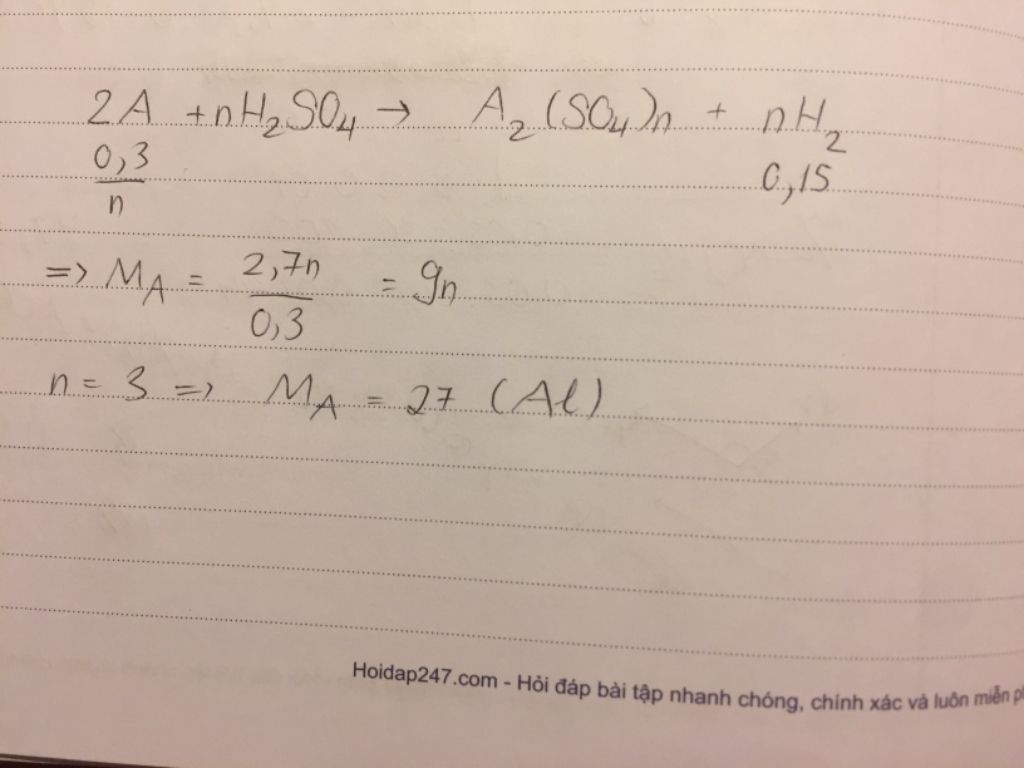 2A + nH₂SO₄ → A₂(SO₄)n + nH₂
0,3/n 0,15
=> M_A = 2,7n/0,3 = 9n
n = 3 => M_A = 27 (Al)
Hoidap247.com - Hỏi đáp bài tập nhanh chóng, chính xác và luôn miễn